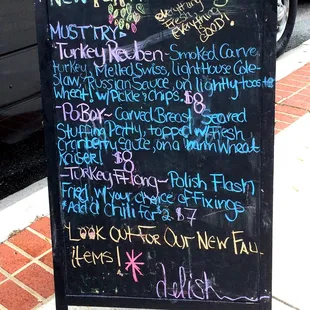 everything
Fresh
everything
GOOD!
MUST TRY~
Turkey Reuben~ Smoked Carved
turkey, Melted Swiss, lighthouse Cole-
slaw, Russian Sauce, on lightly toasted
wheat! w/ Pickle & chips. $8
~PoBox~ Carved Breast, Seared
Stuffing Patty, topped w/ Fresh
Cranberry sauce, on a warm wheat
Kaiser! $8
~Turkey Hong~ Polish Flash
Fried w/ your chance of Fixings
*Add a Chili for 2 $7
Look out For Our New Fall
items!
delish